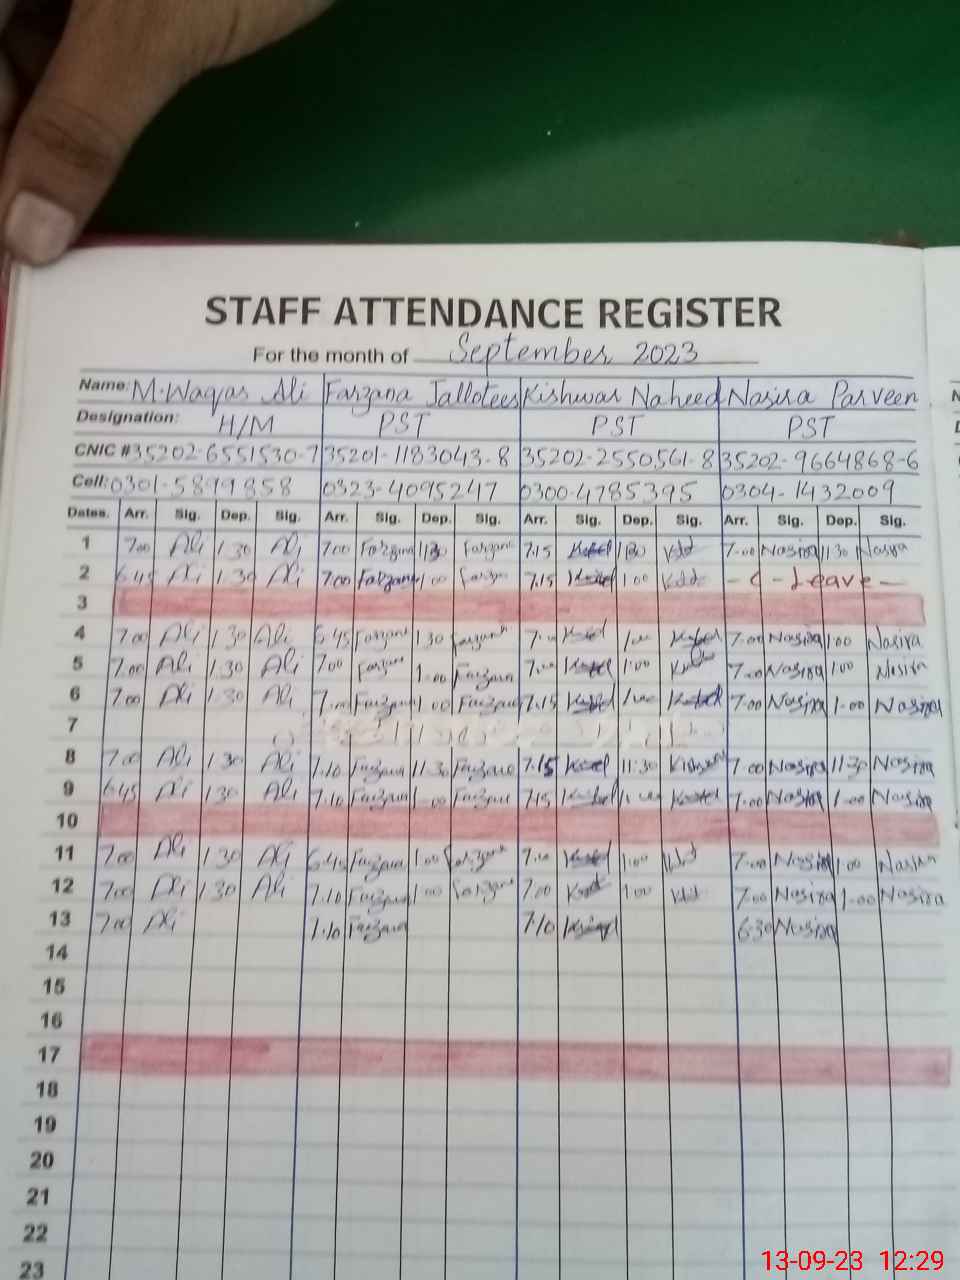 STAFF ATTENDANCE REGISTER
For the month of September 2023
Name: M.Waqas Ali Farzana Jallotees Kishwar Naheed Nasira Parveen
Designation: H/M PST PST PST
CNIC # 35202-6551530-7 35201-1183043-8 35202-2550561-8 35202-9664868-6
Cell: 0301-5899858 0323-4095247 0300-4785395 0304-1432009
Dates. Arr. Sig. Dep. Sig. Arr. Sig. Dep. Sig. Arr. Sig. Dep. Sig. Arr. Sig. Dep. Sig.
1 7.00 Ali 1.30 Ali 7.00 Farzana Farzana 7.15 7.00 Nasira 11 30 Nasira
2 6.45 Ali 1.30 Ali 7.00 Farzana 1.00 7.15 1.00 - C - Leave -
3
4 7.00 Ali 1.30 Ali 6.45 Farzana 1.30 Farzana 7.00 Nasira 1.00 Nasira
5 7.00 Ali 1.30 Ali 7.00 Farzana 1.00 Farzana 1.00 7.00 Nasira 1.00 Nasira
6 7.00 Ali 1.30 Ali Farzana 1.00 Farzana 7.15 7.00 Nasira 1.00 Nasira
7
8 7.00 Ali 1.30 Ali 7.10 Farzana 11.30 Farzana 7.15 11:30 7.00 Nasira 11 30 Nasira
9 6.45 Ali 1.30 Ali 7.10 Farzana Farzana 7.15 7.00 Nasira 1.00 Nasira
10
11 7.00 Ali 1.30 Ali 6.45 Farzana 1.00 Farzana 1.00 7.00 Nasira 1.00 Nasira
12 7.00 Ali 1.30 Ali 7.10 Farzana 1.00 Farzana 7.00 1.00 7.00 Nasira 1.00 Nasira
13 7.00 Ali 7.10 Farzana 7.10 6.30 Nasira
14
15
16
17
18
19
20
21
22
23
13-09-23 12:29